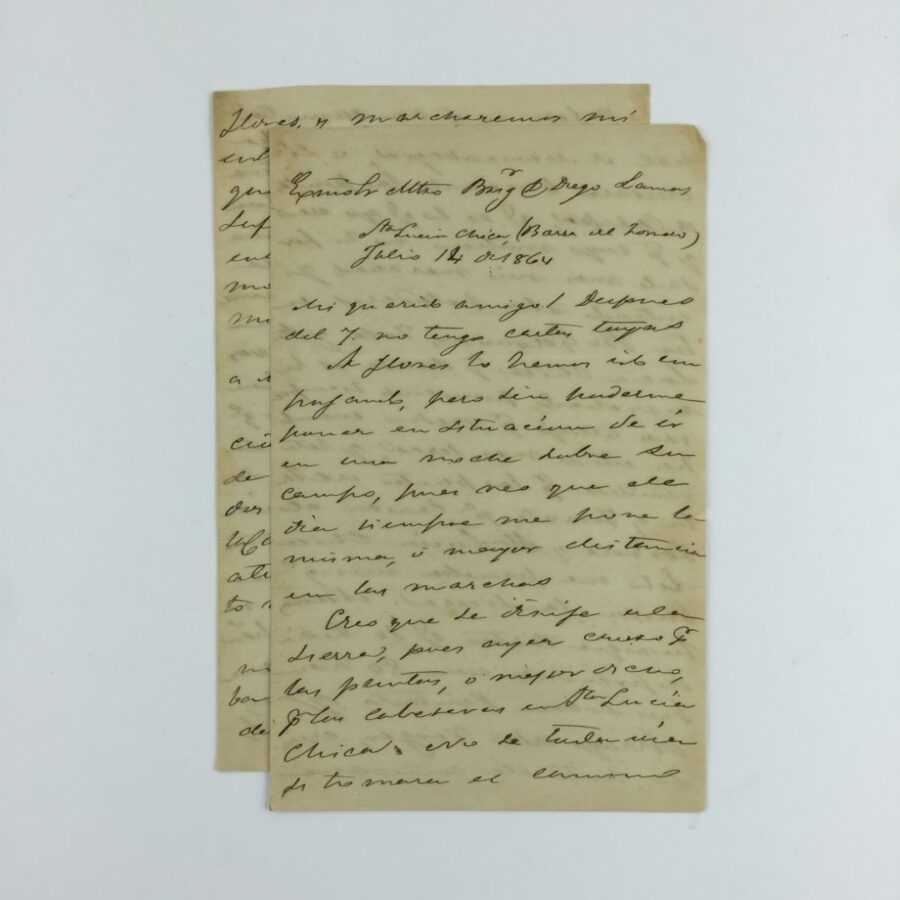 Flores, y marcharemos mi
ent
que
Exmo Sr Mtro Brigr D Diego Lamas
Sta Lucia Chica (Barra del Tornero)
Julio 14 de 1864
Mi querido amigo! Despues
del 7. no tengo cartas tuyas
A Flores lo hemos ido em
pujando, pero sin poderme
poner en situacion de ir
en una noche sobre su
campo, pues veo que de
dia siempre me pone la
misma, o mayor distancia
en las marchas
Creo que se dirije a la
sierra, pues ayer cruzó p
las puntas, o mejor dicho,
p las cabeseras en Sta Lucia
Chica. No se todavia
si tomara el camino